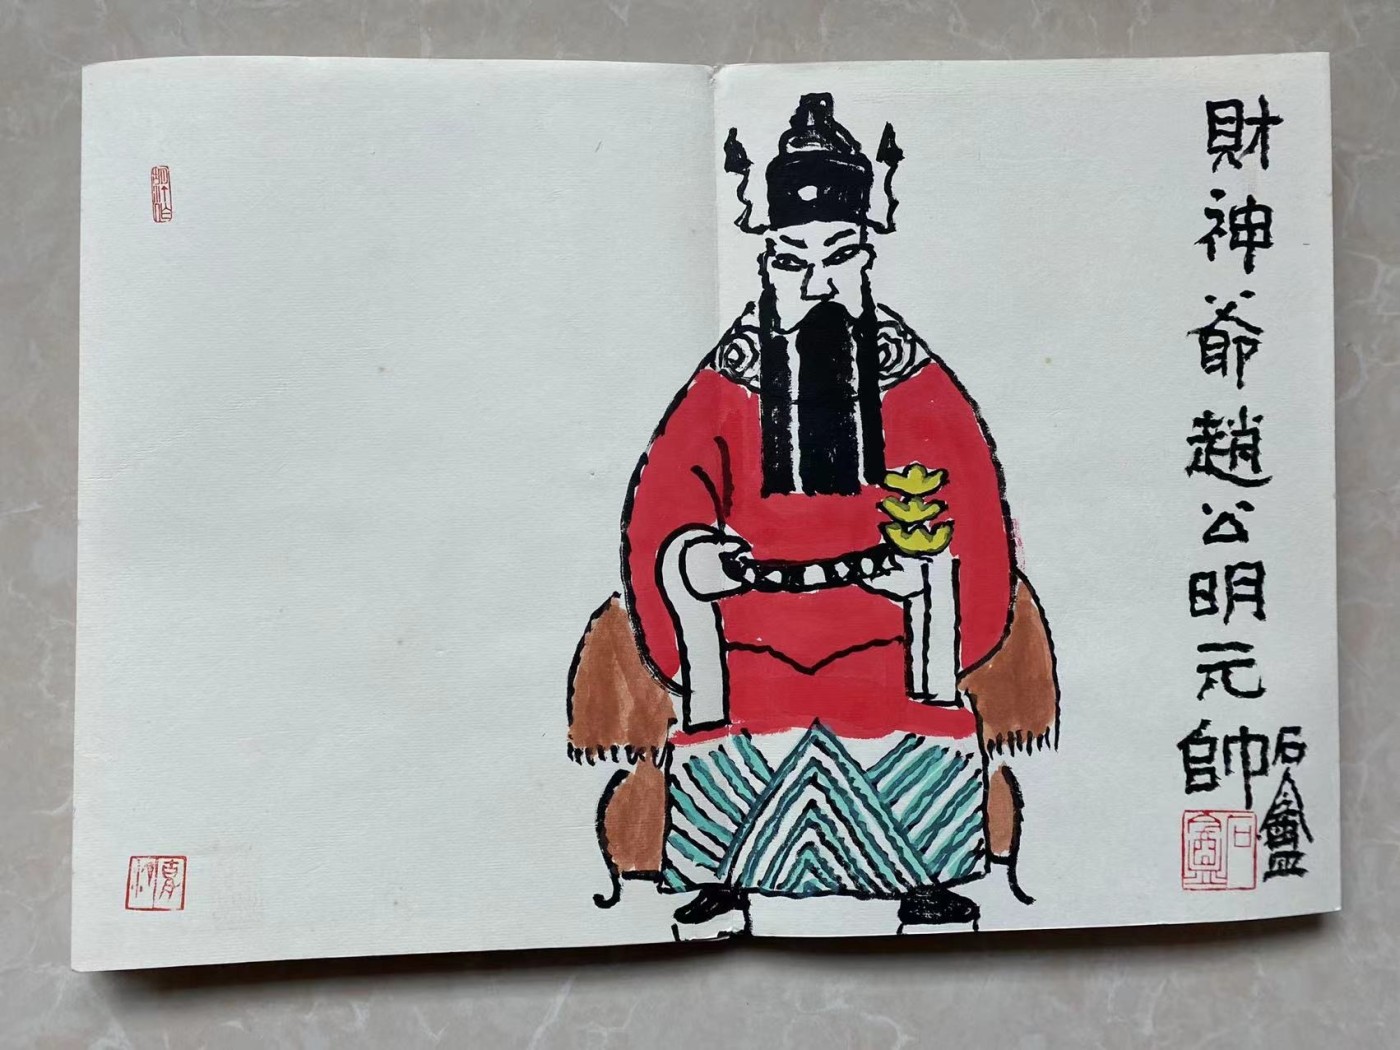 財神爺趙公明元帥
石盦
石盦